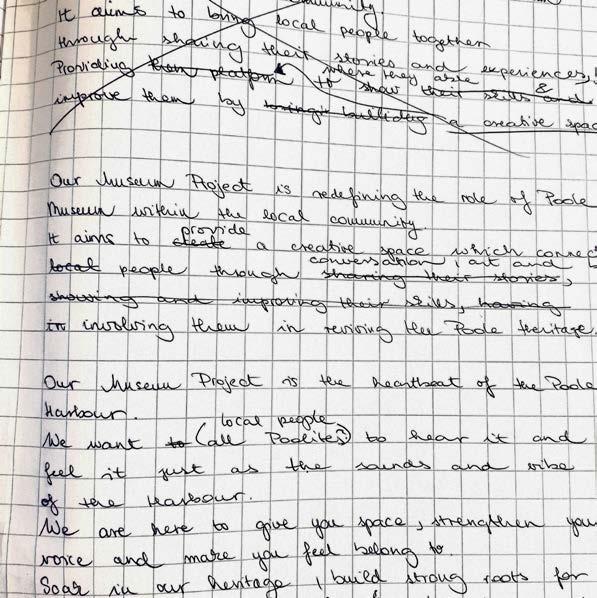 community
It aims to bring local people together
through sharing their stories and experiences,
where they are able &
Providing them platform to show their skills and
improve them by buillding a creative spac
Our Museum Project is redefining the role of Poole
Museum within the local community.
provide
It aims to create a creative space which connec
conversation, art and
local people through sharing their stories,
showing and improving their skills, having
in involving them in reviving the Poole Heritage.
Our Museum Project is the heartbeat of the Poole
Harbour.
local people
We want to (all Poolites) to hear it and
feel it just as the sounds and vibe
of the Harbour.
We are here to give you space, strengthen you
voice and make you feel belong to.
Soak in our heritage, build strong roots for